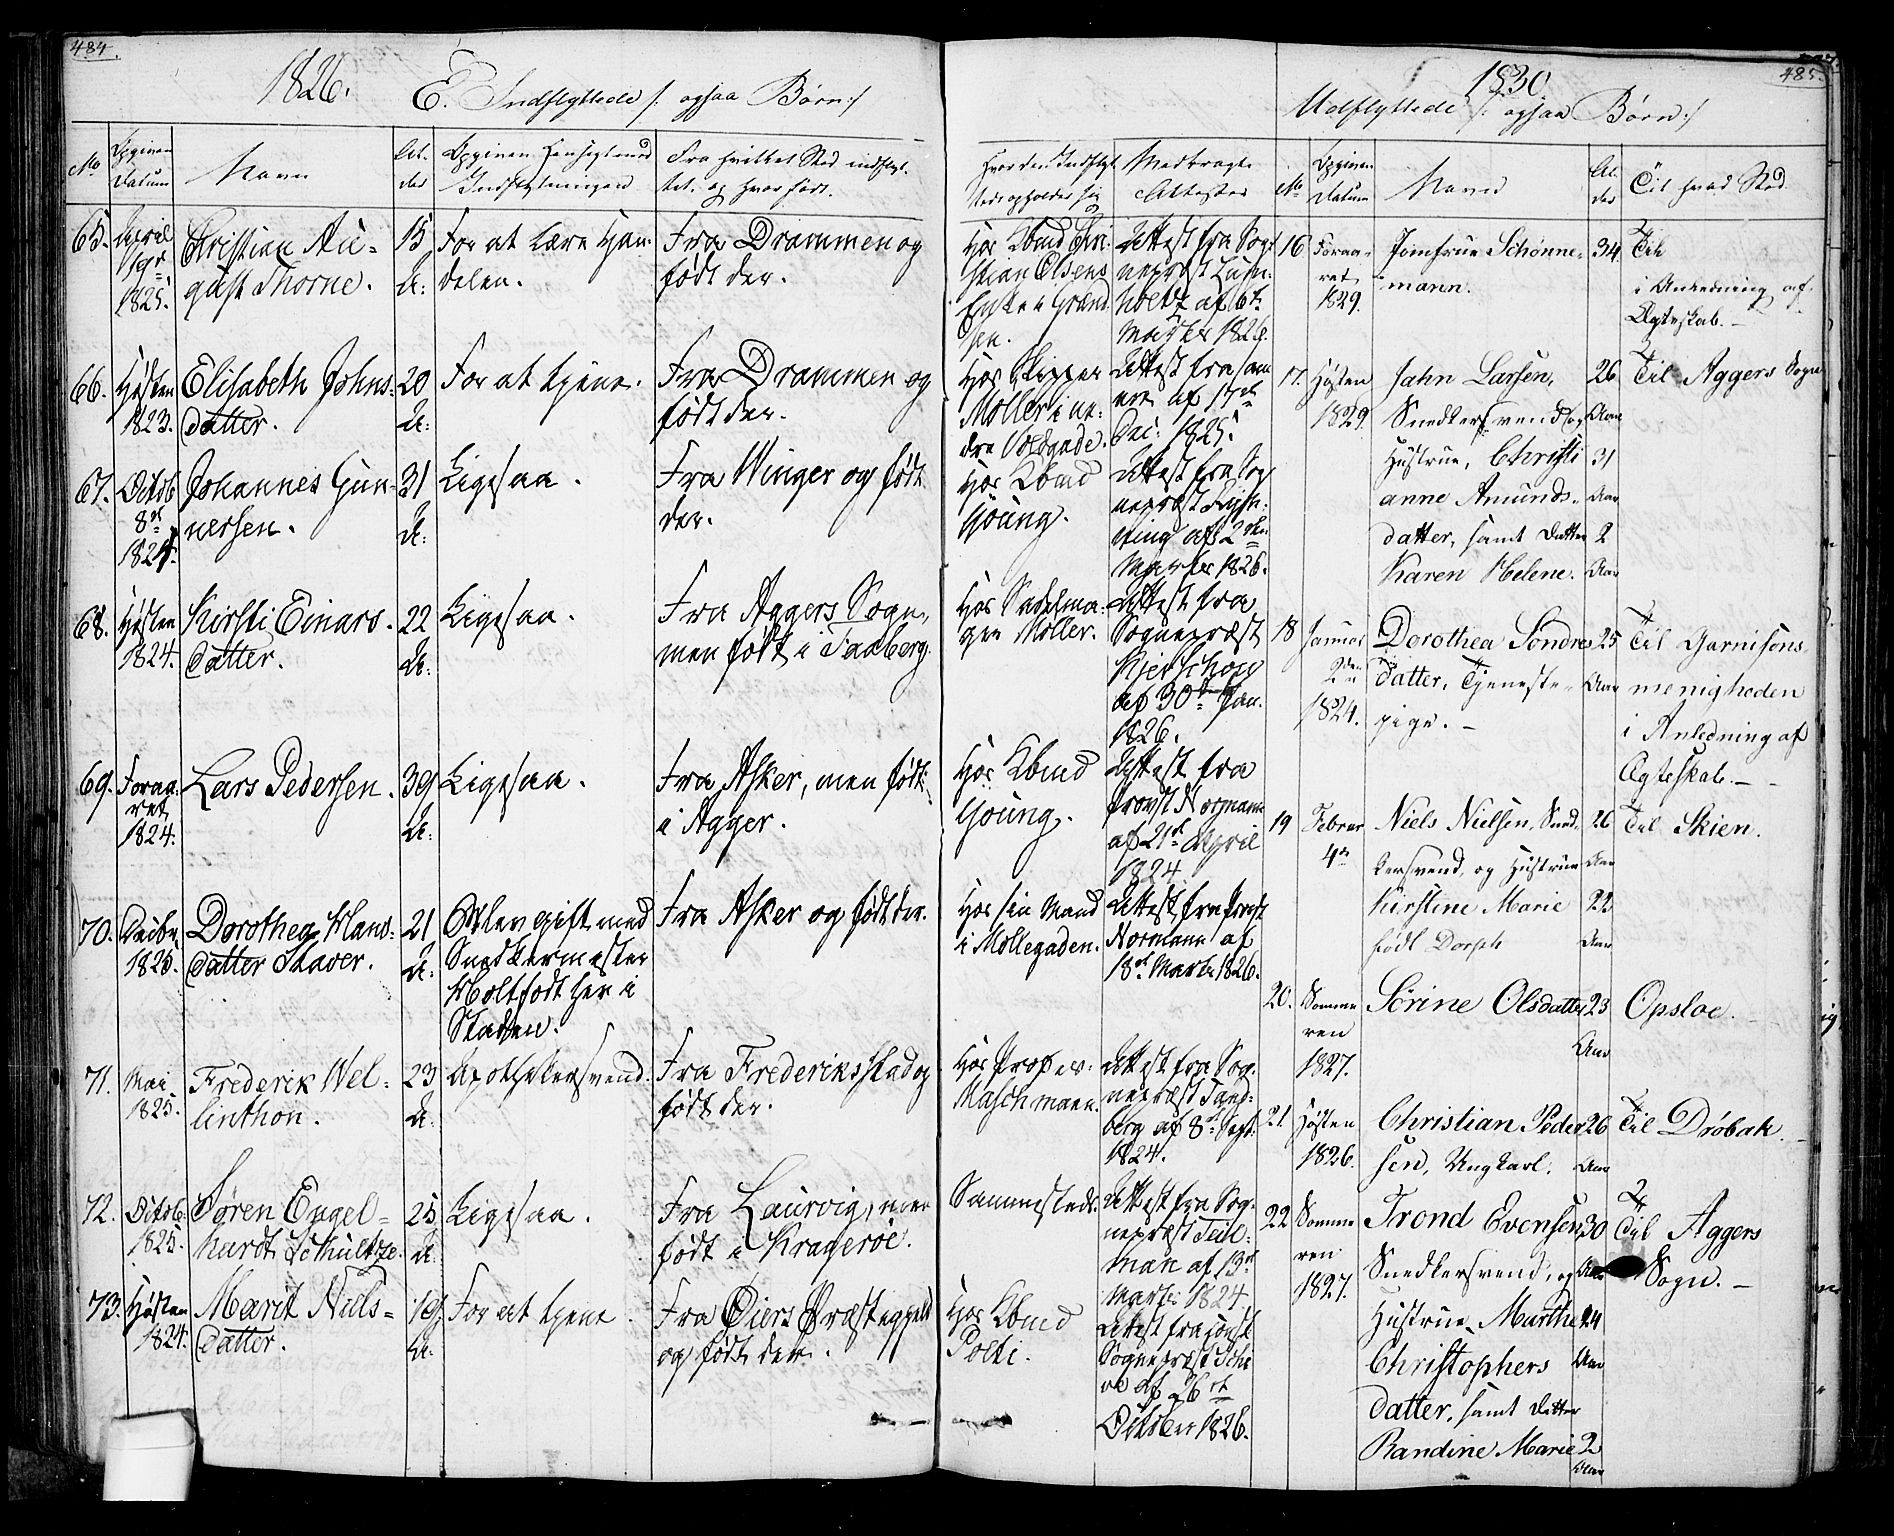 484.
1826.
E. Indflyttede /: ogsaa Børn:/
No
Opgiven Datum
Navn
Al-
der
Opgiven Hensigt med
Indflytningen
Fra hvilket Sted indflyt-
tet, og hvor født.
Hvor den Indflyt-
tede opholder sig
Medbragte
Attester
65. April 19de 1825.
Christian Au-
gust Thorne.
15 A:
For at lære Han-
delen.
Fra Drammen og
født der.
Hos Kbmd Chri-
stian Olsens
Enke i Grænd-
sen.
Attest fra Sog-
nepræst
af 6te
Marts 1826.
66. Høsten 1823.
Elisabeth Johns-
datter.
20 A:
For at tjene.
Fra Drammen og
født der.
Hos Skipper
Møller i ne-
dre Voldgade.
Attest fra sam-
me af 17de
Dec: 1825.
67. Octob 8de 1824.
Johannes Gun-
nersen.
31 A:
Ligesaa.
Fra Winger og født
der.
Hos Kbmd
Young.
Attest fra Sog-
nepræst
af 2den
Marts 1826.
68. Høsten 1824.
Kirsti Einars-
datter.
22 A:
Ligesaa.
Fra Aggers Sogn,
men født i Faaberg.
Hos Sadelma-
ger Møller.
Attest fra
Sognepræst
Kjerschow
af 30te Jan.
1826.
69. Foraa-
ret
1824.
Lars Pedersen.
39 A:
Ligesaa.
Fra Asker, men født
i Agger.
Hos Kbmd
Young.
Attest fra
Provst Normann
af 21de April
1824
70. Decbr. 1825.
Dorothea Hans-
datter Skaver.
21 A:
Bleven gift med
Snedkermester
Holt født her i
Staden.
Fra Asker og født der.
Hos sin Mand
i Møllegaden.
Attest fra Provst
Normann af
18de Marts 1826.
71. Mai 1825.
Frederik Wel-
linthon.
23 A:
Apothekersvend.
Fra Frederiksstad og
født der.
Hos Profes.
Maschmann.
Attest fra Sog-
nepræst Tand-
berg af 8de Sept:
1824.
72. Octob. 1825.
Søren Engel-
hardt Schultze.
25 A:
Ligesaa.
Fra Laurvig, men
født i Kragerøe.
Sammesteds.
Attest fra Sog-
nepræst Teil-
man af 13de
Marts 1824
73. Høsten 1824.
Marit Niels-
datter.
19 A:
For at tjene.
Fra Øiers Præstegjeld
og født der.
Hos Kbmd
Polti.
Attest fra const.
Sognepræst
af 26de
October 1826.
485.
1830
Udflyttede /: ogsaa Børn:/
No
Opgiven Datum
Navn
Al-
der
Til hvad Sted
16 Foraa-
ret
1829.
Jomfrue Schønne-
mann.
34
Til
i Anledning af
Ægteskab. —
17. Høsten 1829
Jahn Larsen,
Snedkersvend og
Hustrue, Christi
anne Amunds-
datter, samt Datter
Karen Helene.
26 Aar
31 Aar
2 Aar
Til Aggers Sogn
18 Januar 2den 1824.
Dorothea Søndre
datter, Tjeneste-
pige. —
25 Aar
Til Garnisons-
menigheden
i Anledning af
Ægteskab. —
19 Februar 4de
Niels Nielsen, Sned-
kersvend, og Hustrue
Kirstine Marie
født Dorph
26 Aar
22 Aar
Til Skien.
20. Somme
ren
1827.
Sørine Olsdatter
23 Aar
Opsloe.
21. Høsten 1826.
Christian Peder
sen, Ungkarl.
26 Aar
Til Drøbak.
22 Somme
ren
1827.
Trond Evensen,
Snedkersvend, og
Hustrue, Marthe
Christophers
datter, samt Datter
Randine Marie
30 Aar
24 Aar
2 Aar
Til Aggers
Sogn. —